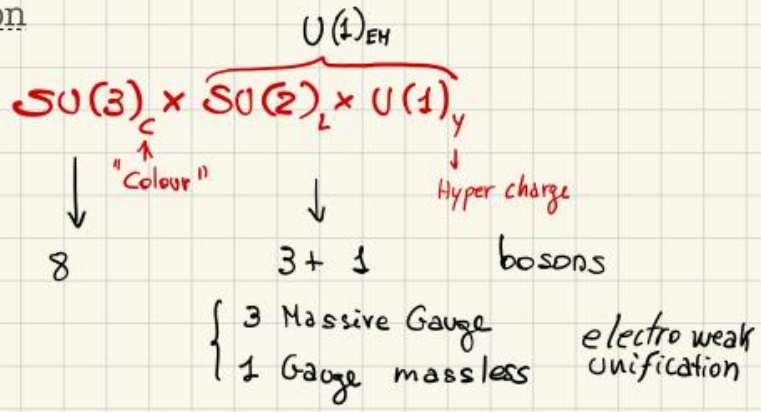 on
U(1)EM
SU(3)C × SU(2)L × U(1)Y
"Colour"
Hyper charge
8 3 + 1 bosons
3 Massive Gauge
1 Gauge massless
electroweak
unification